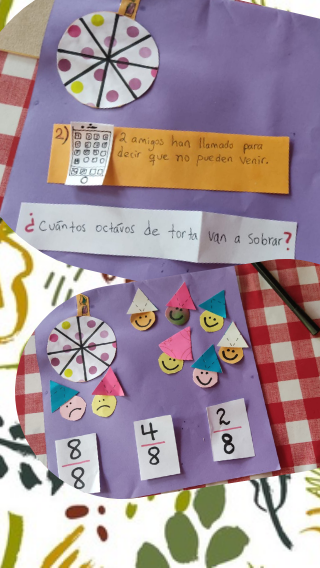 2) 2 amigos han llamado para
decir que no pueden venir.
¿Cuántos octavos de torta van a sobrar?
8/8
4/8
2/8